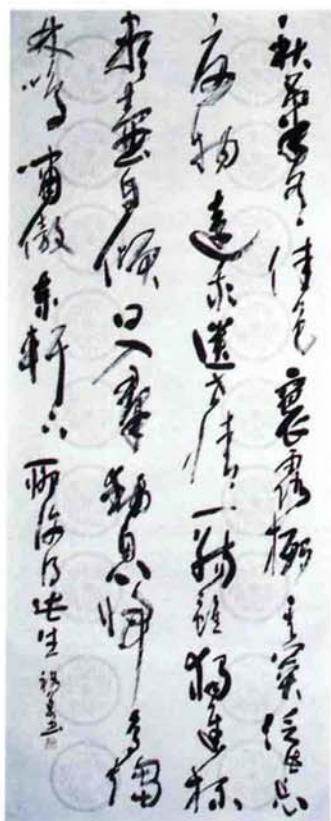 秋菊有佳色裛露掇其英泛此忘
憂物遠我遺世情一觴雖獨進杯
盡壺自傾日入羣動息歸鳥趨
林鳴嘯傲東軒下聊復得此生